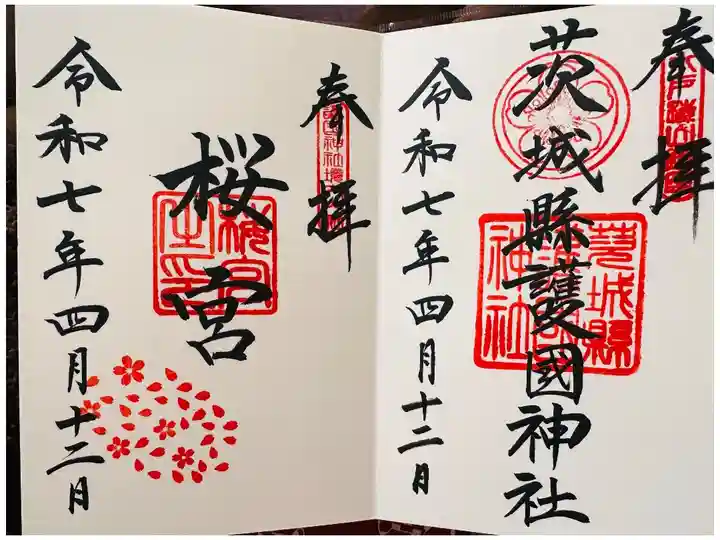 奉拝
茨城縣護國神社
令和七年四月十二日
茨城縣
護國
神社
奉拝
桜宮
令和七年四月十二日